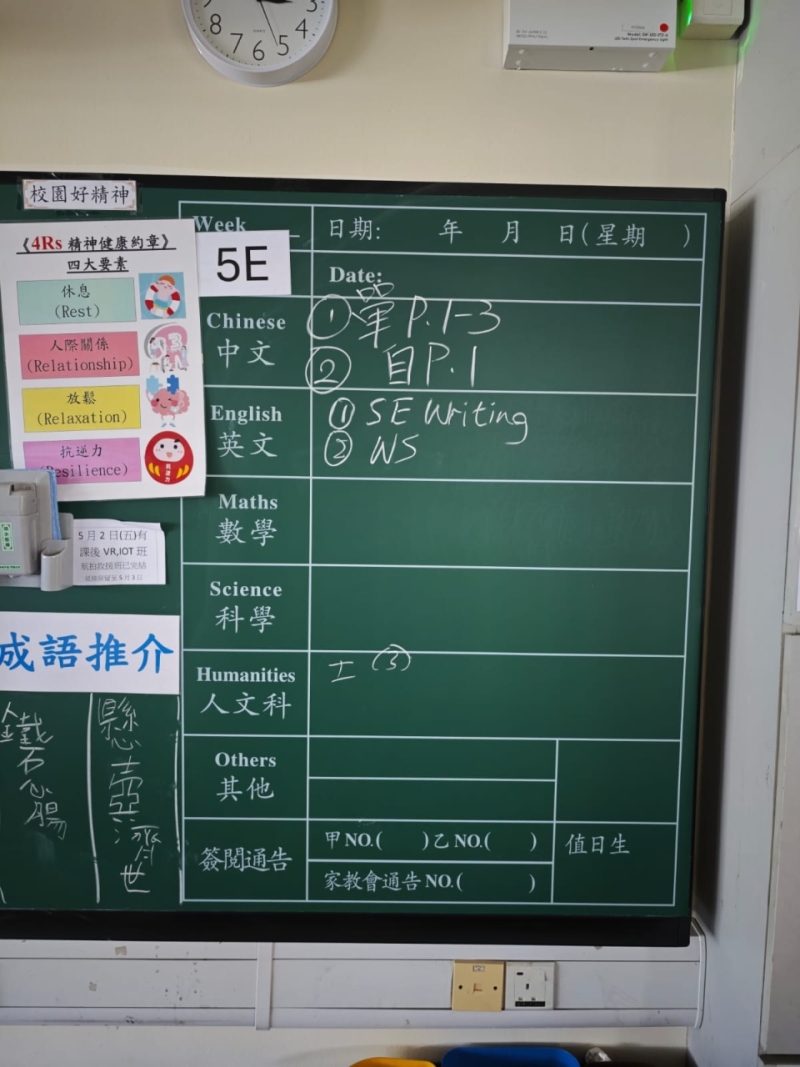 8
7
6
5
4
3
校園好精神
《4Rs 精神健康約章》
四大要素
休息
(Rest)
人際關係
(Relationship)
放鬆
(Relaxation)
抗逆力
(Resilience)
5月2日(五)有
課後 VR,IOT 班
成語推介
鐵石心腸
懸壺濟世
5E
Week
日期: 年 月 日(星期 )
Date:
Chinese
中文
① 單 P.1-3
② 自 P.1
English
英文
① SE Writing
② NS
Maths
數學
Science
科學
Humanities
人文科
工 (3)
Others
其他
簽閱通告
甲NO.( )乙NO.( )
家教會通告NO.( )
值日生